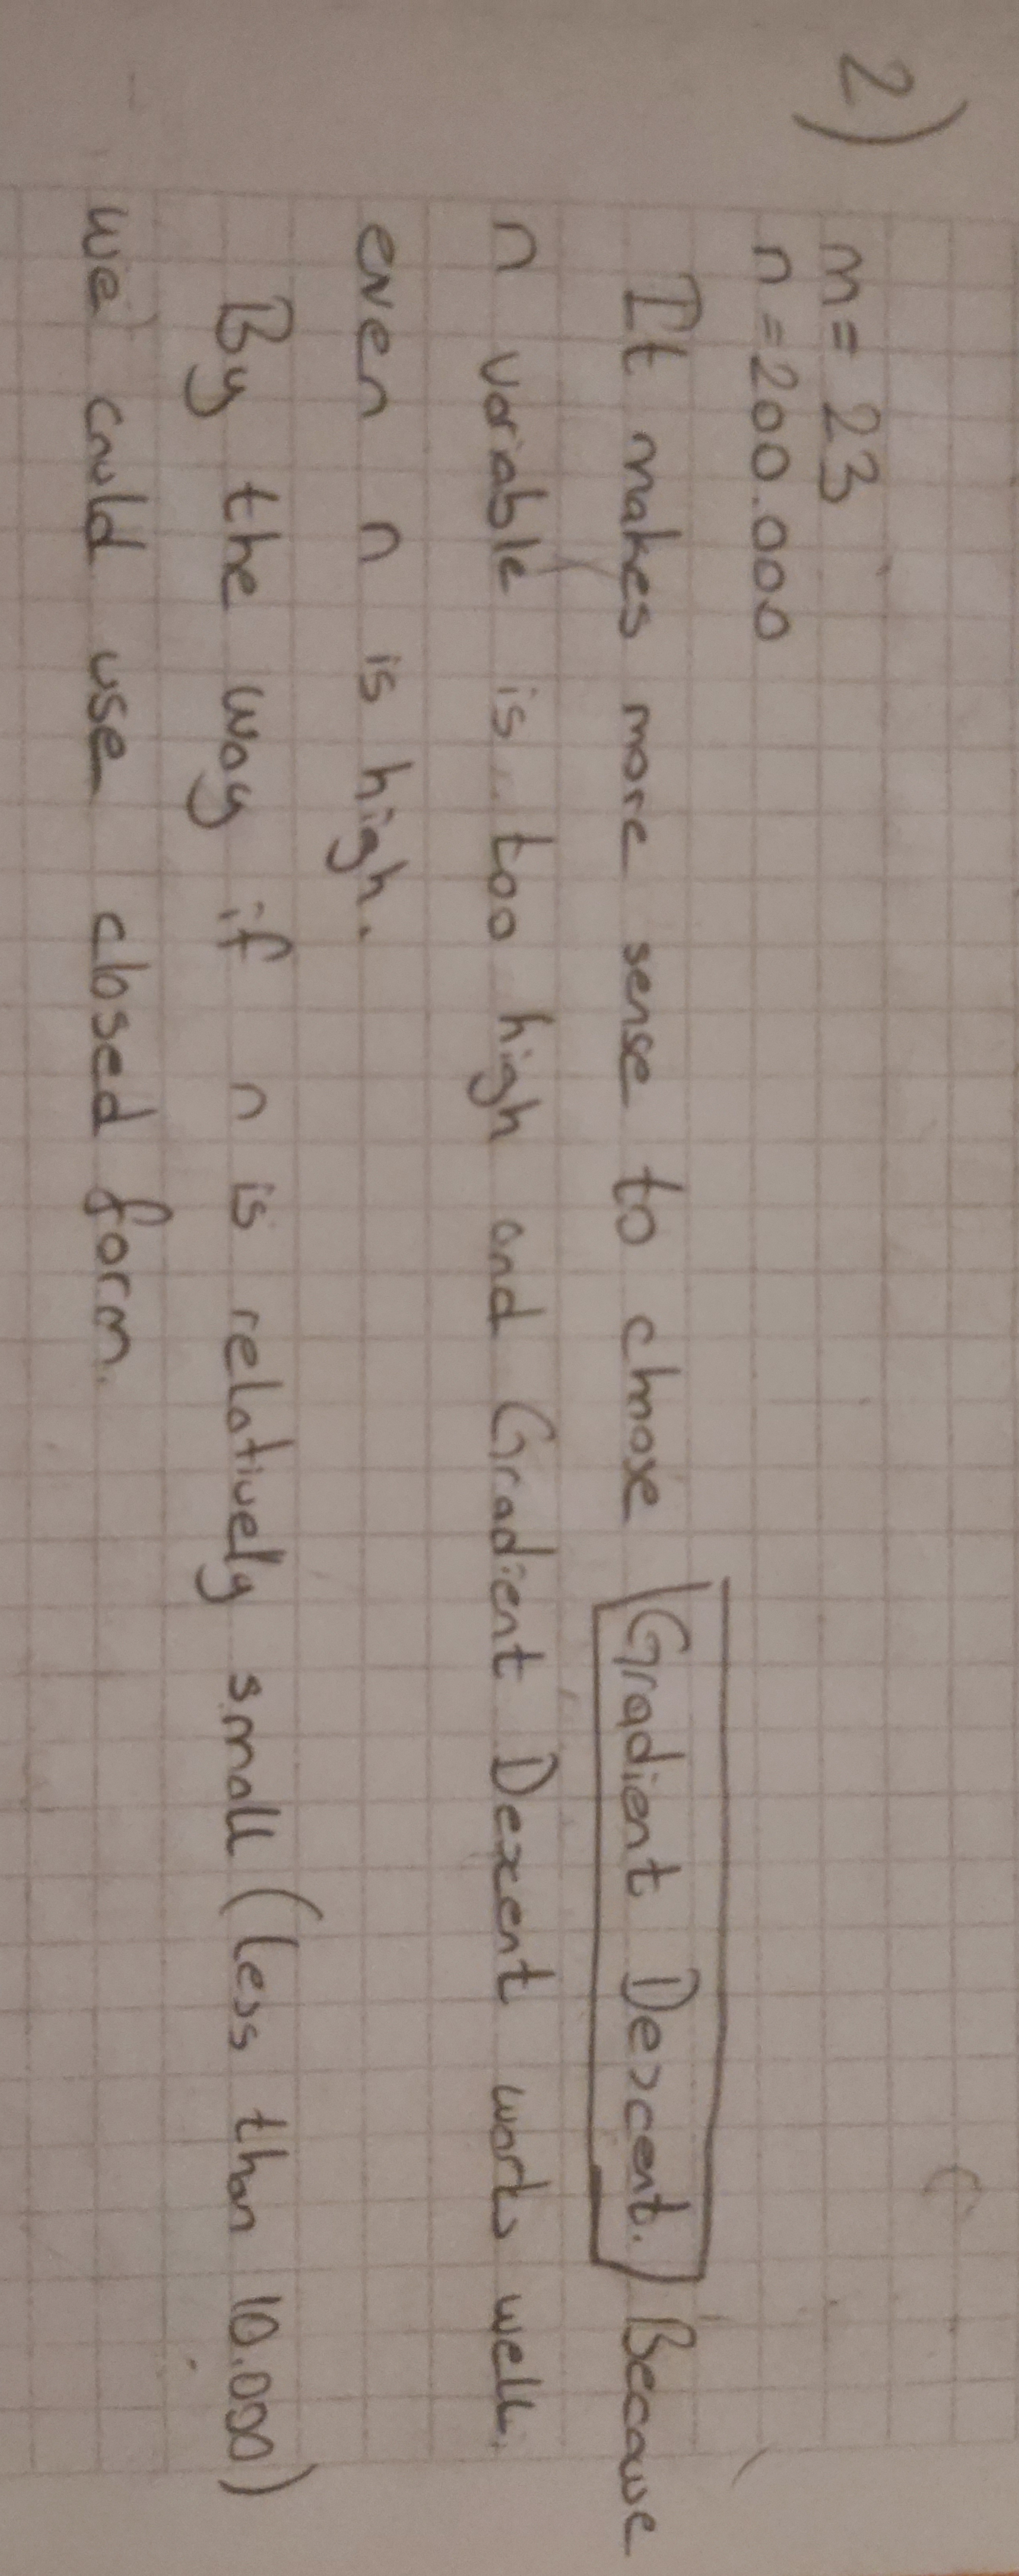 2)
m= 23
n=200.000
It makes more sense to choose Gradient Descent. Because
n variable is too high and Gradient Descent works well.
even n is high.
By the way if n is relatively small (less than 10.000)
we could use closed form.